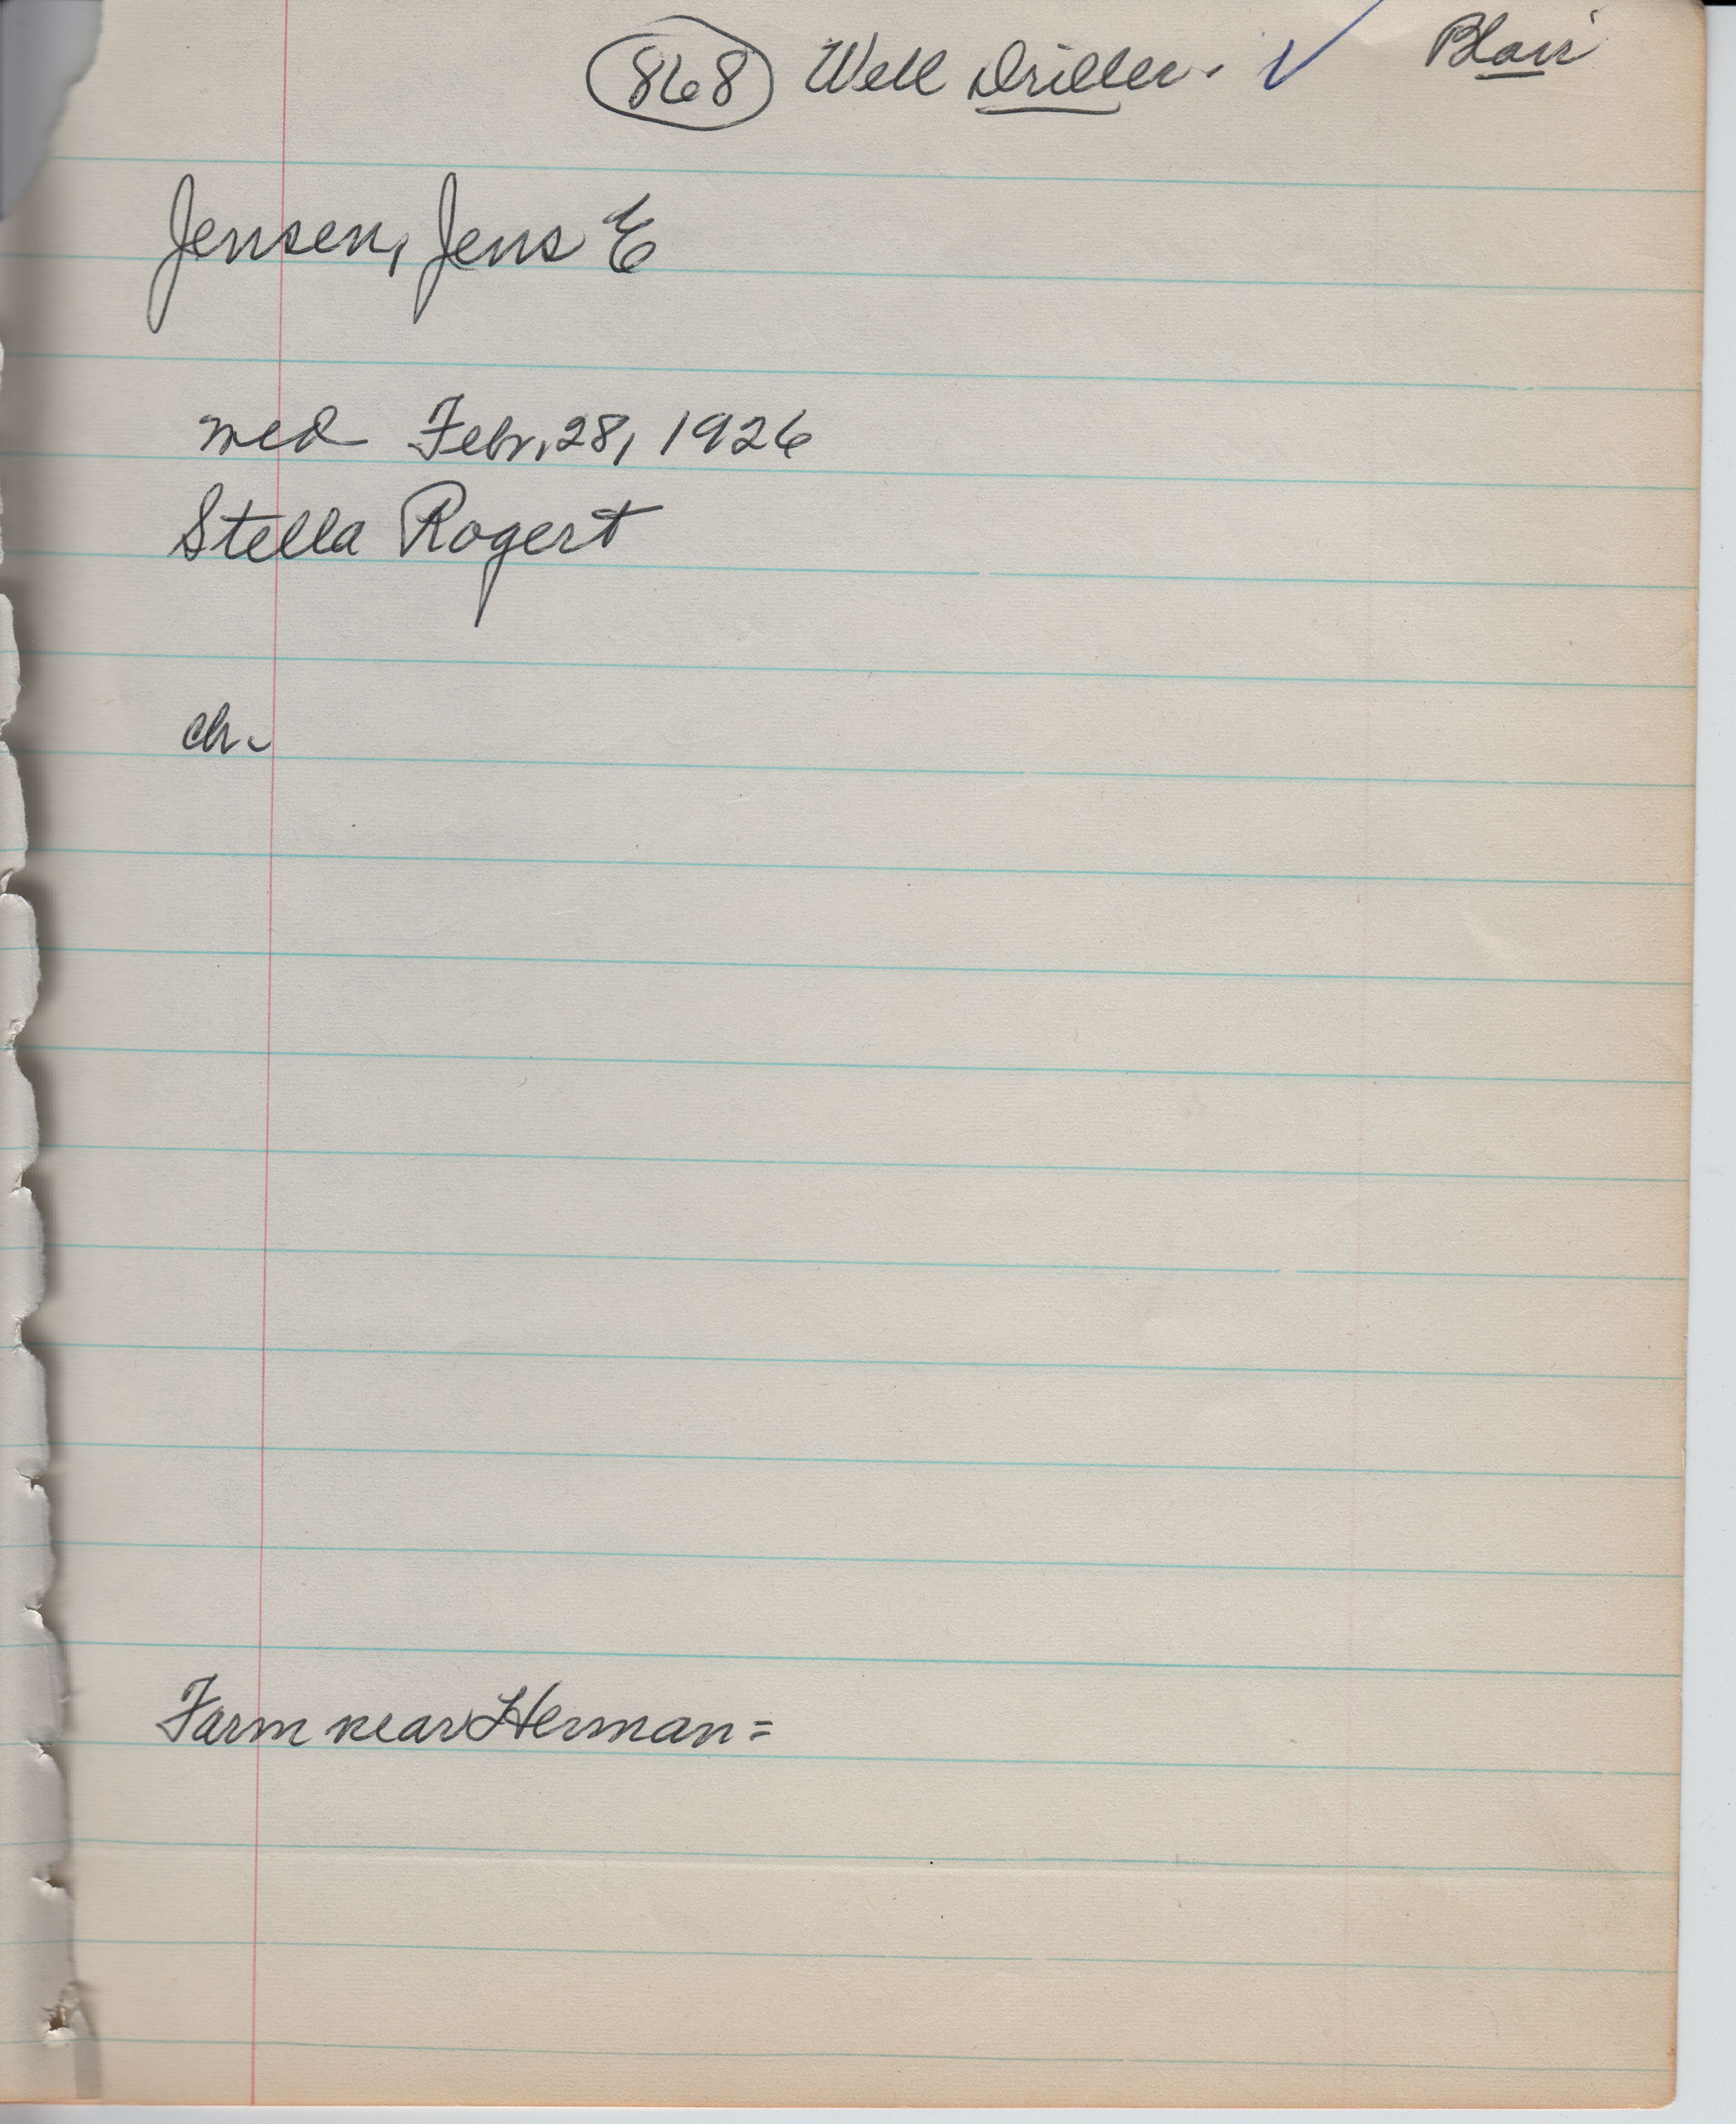 868 Well Driller. ✓ Blair
Jensen, Jens E
med Febr. 28, 1926
Stella Rogert
ch.
Farm near Herman =